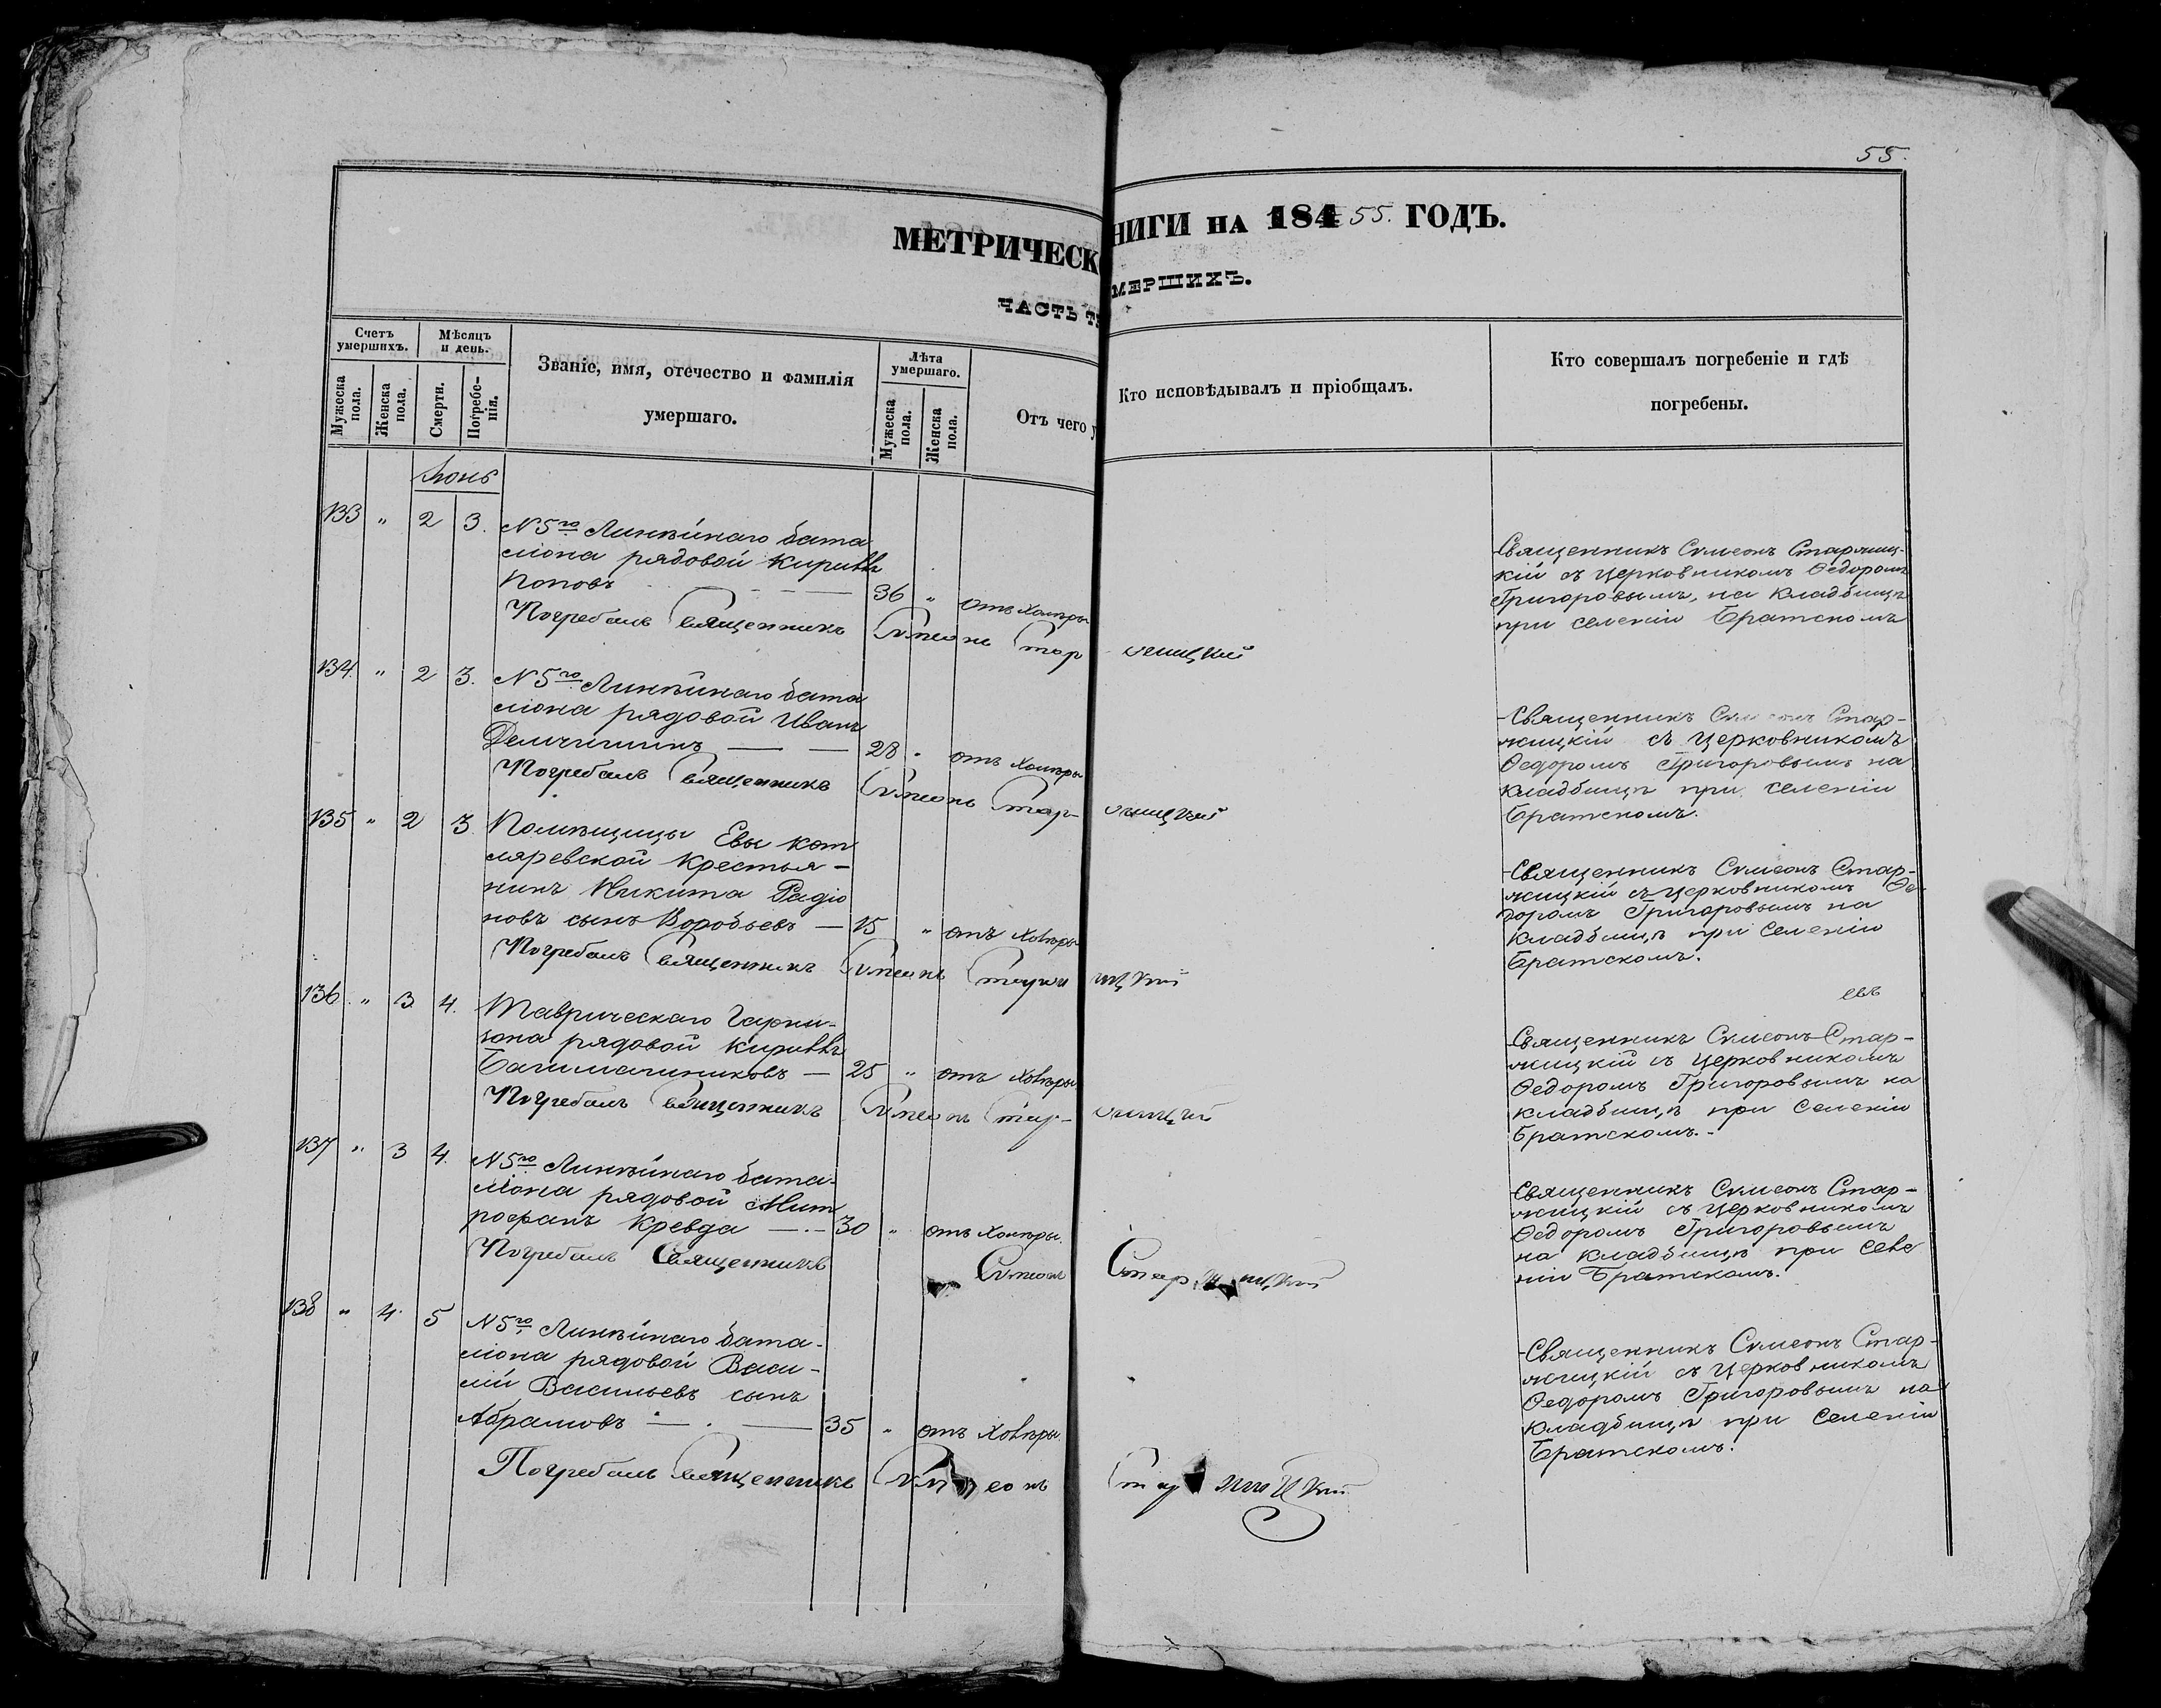 55.
МЕТРИЧЕСК
НИГИ НА 184 55. ГОДЪ.
ЧАСТЬ Т
МЕРШИХЪ.
Счетъ умершихъ.
Мѣсяцъ и день.
Званіе, имя, отечество и фамилія
умершаго.
Лѣта умершаго.
Отъ чего у
Кто исповѣдывалъ и пріобщалъ.
Кто совершалъ погребеніе и гдѣ
погребены.
Мужеска пола.
Женска пола.
Смерти.
Погребе-
нія.
Мужеска пола.
Женска пола.
Іюнь
133 " 2 3. N 5го Линѣйнаго бата
ліона рядовой Кириллъ
Поповъ 36 " отъ холеры
Погребалъ Священникъ Симеонъ Стар жицкій
Священникъ Симеонъ Старжиц-
кій съ церковникомъ Ѳедоромъ
Григоровымъ, на кладбищѣ
при селеніи Братскомъ
134. " 2 3. N 5го Линѣйнаго бата
ліона рядовой Иванъ
28 " отъ холеры
Погребалъ Священникъ Симеонъ Стар- жицкій
Священникъ Симеонъ Стар-
жицкій съ церковникомъ
Ѳедоромъ Григоровымъ на
кладбищѣ при селеніи
Братскомъ.
135 " 2 3. Помѣщицы Евы Кот
ляревской крестья-
нинъ Никита Радіо
новъ сынъ Воробьевъ — 15 " отъ холеры
Погребалъ Священникъ Симеонъ Старжи цкій
Священникъ Симеонъ Стар-
жицкій съ церковникомъ Ѳе-
доромъ Григоровымъ на
кладбищѣ при селеніи
Братскомъ.
евъ
136. " 3 4. Таврическаго Гарни-
зона рядовой Кириллъ
Башмачниковъ — 25 " отъ холеры
Погребалъ Священникъ Симеонъ Стар- жицкій
Священникъ Симеонъ Стар-
жицкій съ церковникомъ
Ѳедоромъ Григоровымъ на
кладбищѣ при селеніи
Братскомъ.-
137 " 3 4. N 5го Линѣйнаго бата-
ліона рядовой Мит
рофанъ Кревда —.— 30 " отъ холеры.
Погребалъ Священникъ Симеонъ Старжицкій
Священникъ Симеонъ Стар-
жицкій съ церковникомъ
Ѳедоромъ Григоровымъ
на кладбищѣ при селе
ніи Братскомъ.
138 " 4. 5 N 5го Линѣйнаго бата-
ліона рядовой Васи-
лій Васильевъ сынъ
Абрамовъ — . — 35 " отъ холеры.
Погребалъ Священникъ Симеонъ Старжицкій
Священникъ Симеонъ Стар-
жицкій съ церковникомъ
Ѳедоромъ Григоровымъ на
кладбищѣ при селеніи
Братскомъ.